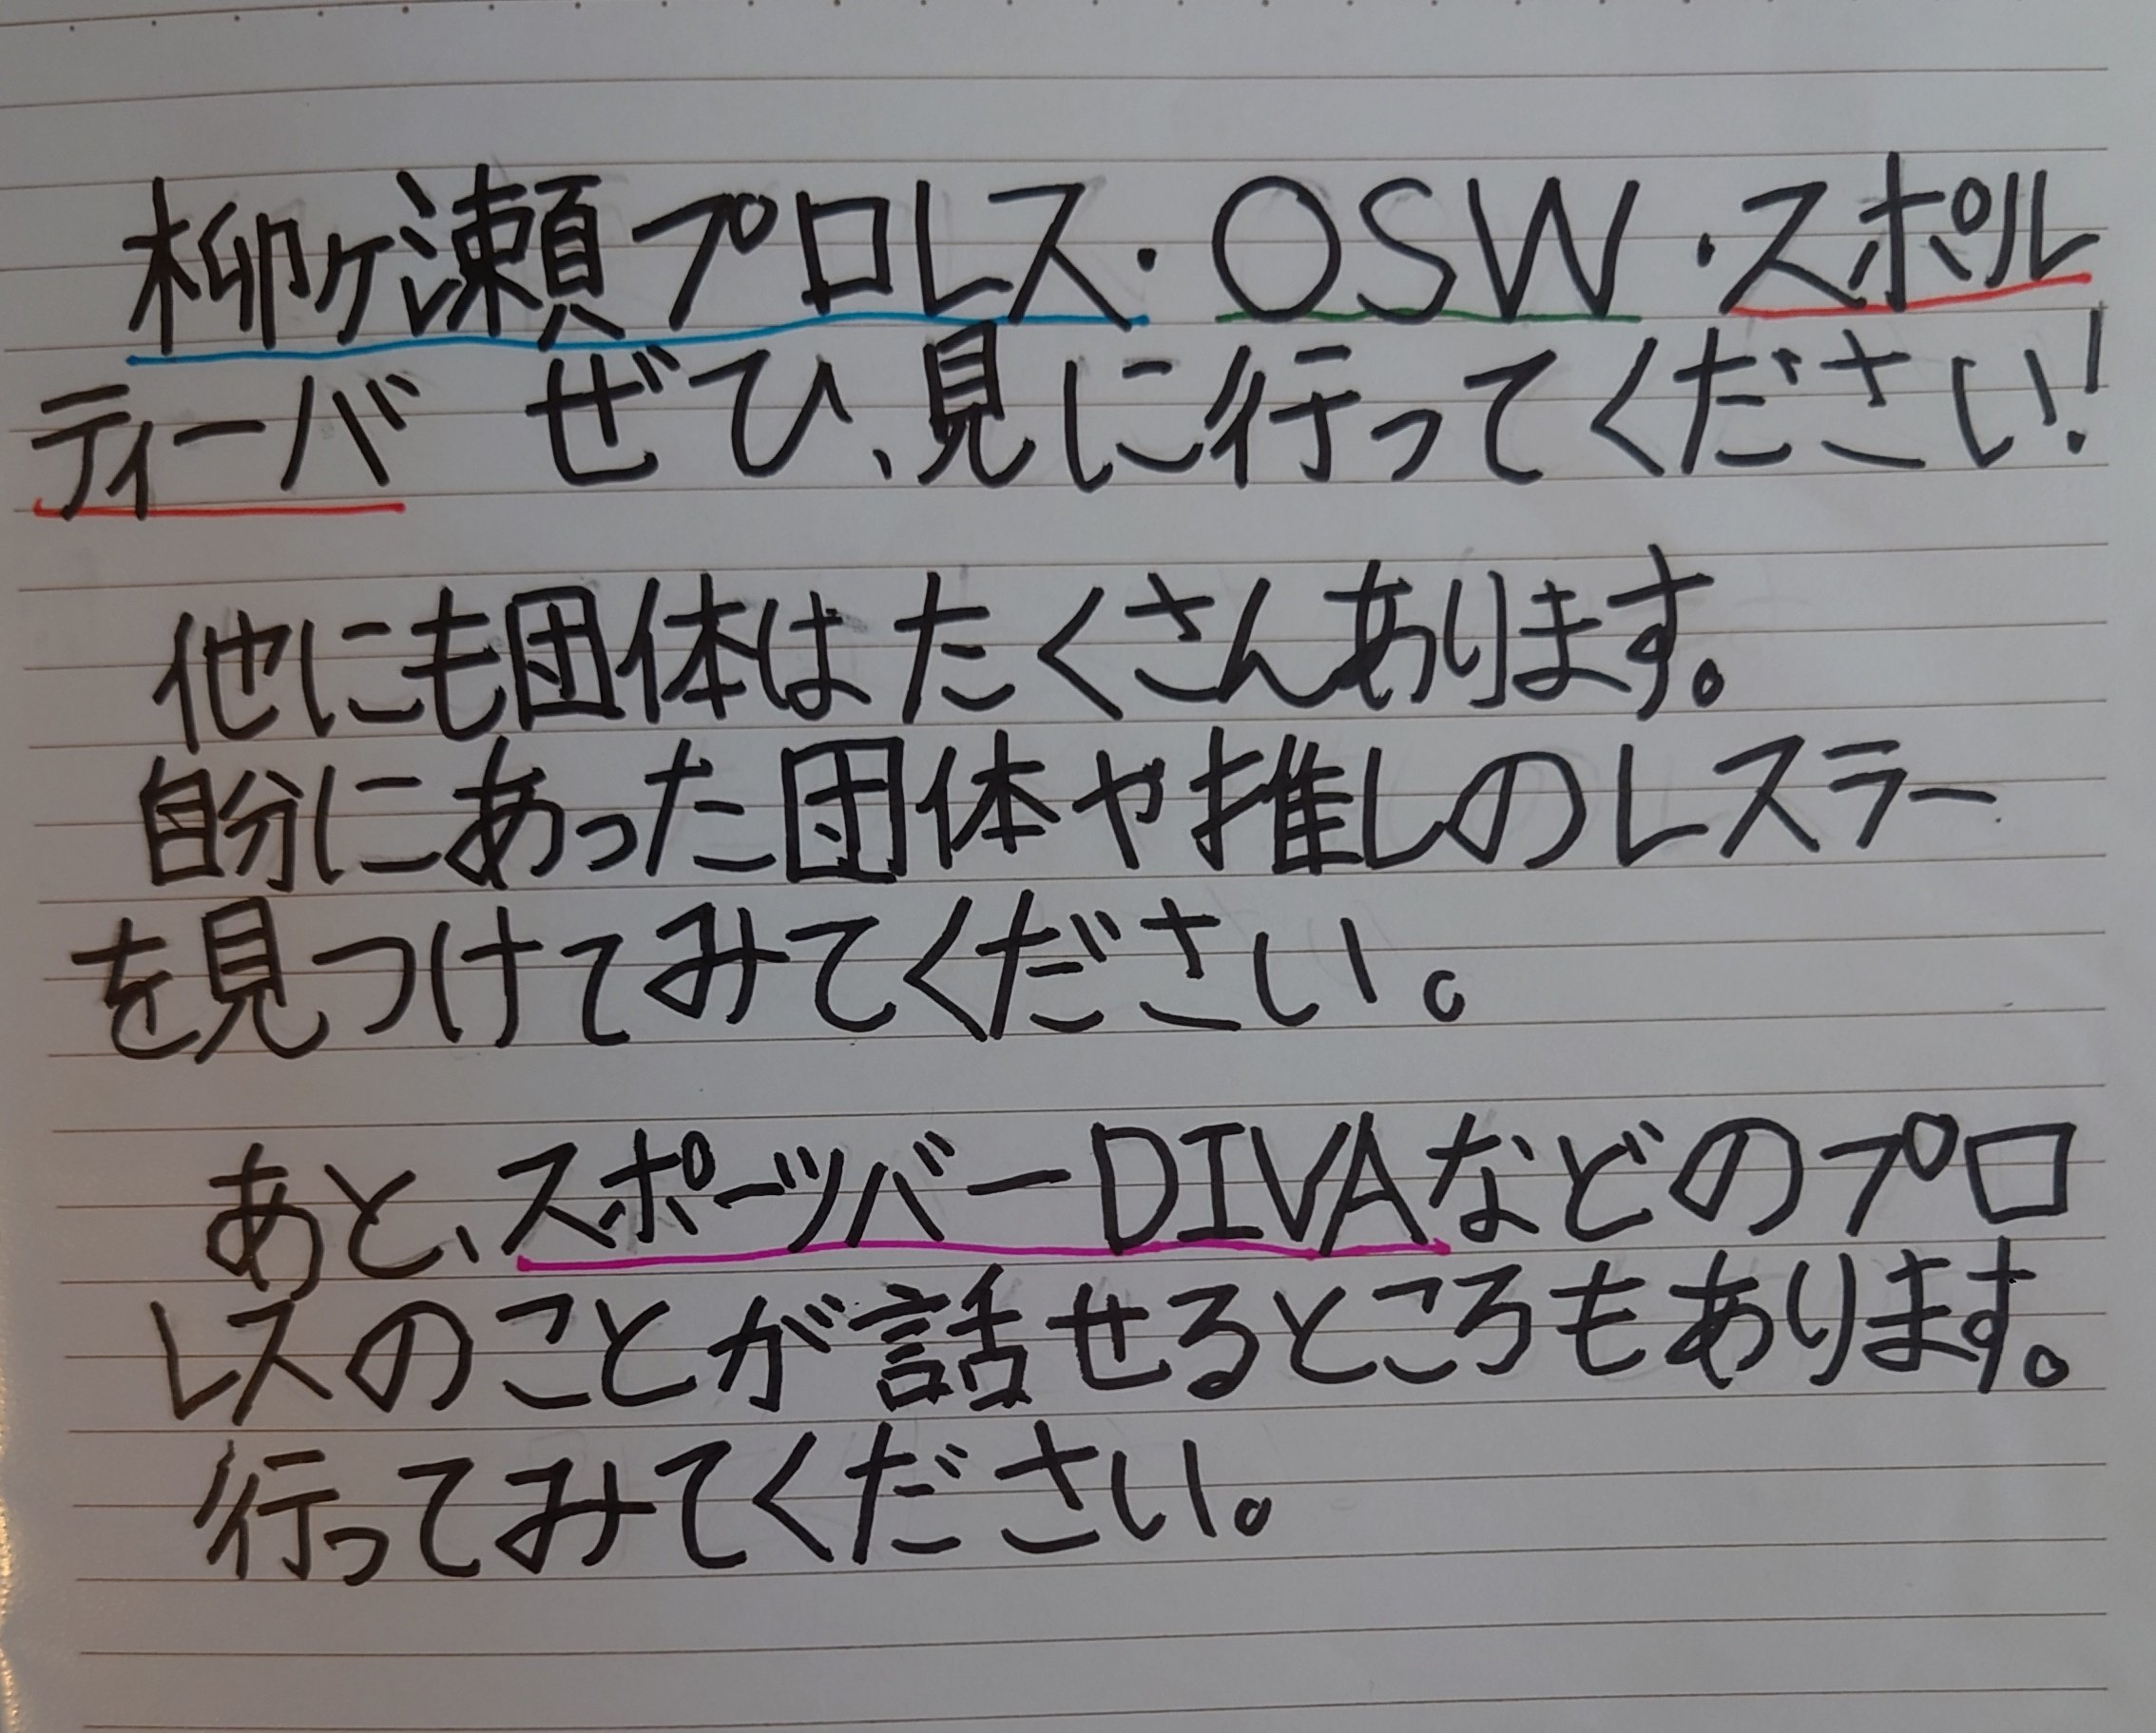 柳ヶ瀬プロレス・OSW・スポル
ティーバ ぜひ、見に行ってください!
他にも団体はたくさんあります。
自分にあった団体や推しのレスラー
を見つけてみてください。
あと、スポーツバーDIVAなどのプロ
レスのことが話せるところもあります。
行ってみてください。